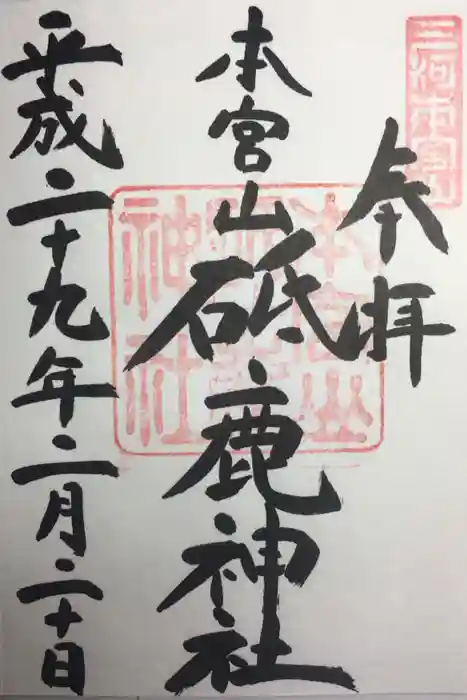 三河本宮
奉拝
本宮山砥鹿神社
平成二十九年二月二十日